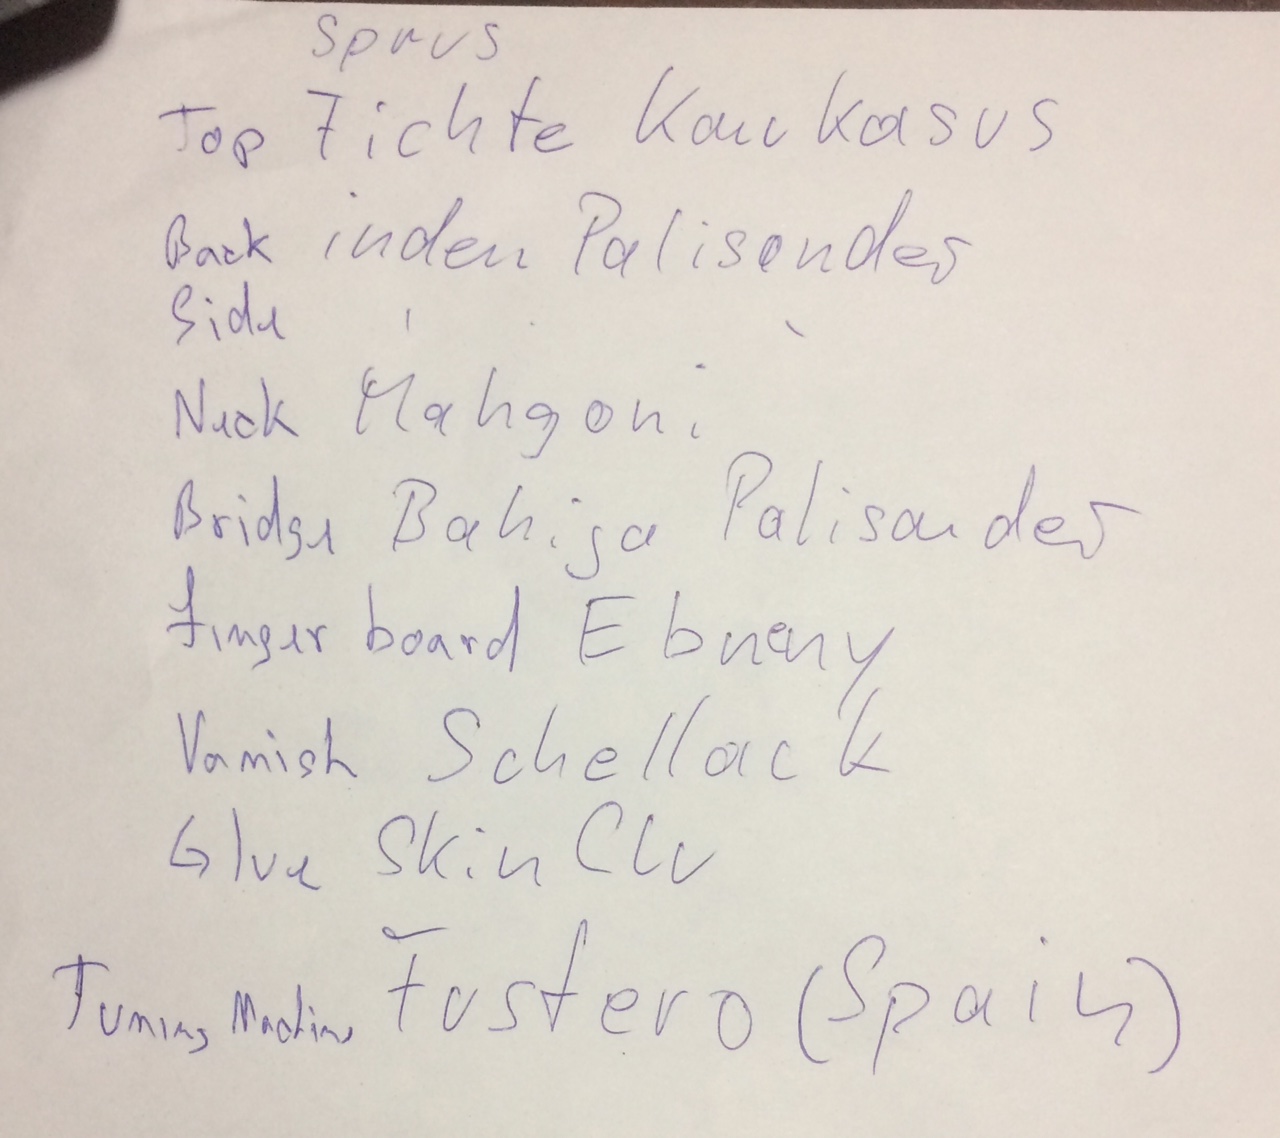 Sprus
Top Fichte Kaukasus
Back inden Palisander
Side
Neck Mahgoni
Bridge Bahija Palisander
Finger board Ebneny
Varnish Schellack
Glue Skin Clu
Tuning Machine Fustero (Spain)